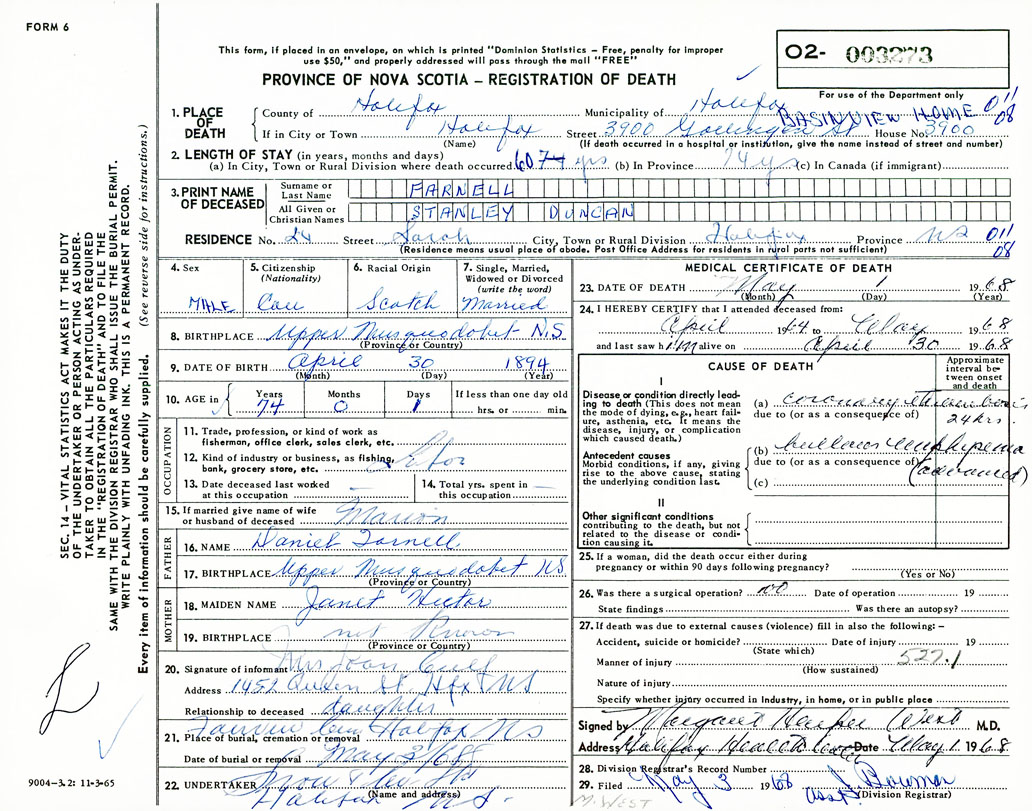 FORM 6
This form, if placed in an envelope, on which is printed "Dominion Statistics – Free, penalty for improper
use $50," and properly addressed will pass through the mail "FREE"
PROVINCE OF NOVA SCOTIA – REGISTRATION OF DEATH
O2- 003273
For use of the Department only
011
08
1. PLACE OF DEATH
County of Halifax Municipality of Halifax
BASINVIEW HOME
If in City or Town Halifax Street 3900 House No. 3900
(Name) (If death occurred in a hospital or institution, give the name instead of street and number)
2. LENGTH OF STAY (in years, months and days)
(a) In City, Town or Rural Division where death occurred yrs (b) In Province 74 yrs (c) In Canada (if immigrant)
3. PRINT NAME OF DECEASED
Surname or Last Name FARNELL
All Given or Christian Names STANLEY DUNCAN
RESIDENCE No. 24 Street Sarah City, Town or Rural Division Halifax Province NS
(Residence means usual place of abode. Post Office Address for residents in rural parts not sufficient)
011
08
4. Sex MALE
5. Citizenship (Nationality) Can
6. Racial Origin Scotch
7. Single, Married, Widowed or Divorced (write the word) Married
8. BIRTHPLACE Upper Musquodobit N.S.
(Province or Country)
9. DATE OF BIRTH April 30 1894
(Month) (Day) (Year)
10. AGE in Years 74 Months 0 Days 1 If less than one day old
hrs. or min.
OCCUPATION
11. Trade, profession, or kind of work as
fisherman, office clerk, sales clerk, etc.
12. Kind of industry or business, as fishing,
bank, grocery store, etc.
13. Date deceased last worked
at this occupation
14. Total yrs. spent in
this occupation
15. If married give name of wife
or husband of deceased Marion
FATHER
16. NAME Daniel Farnell
17. BIRTHPLACE Upper Musquodobit NS
(Province or Country)
MOTHER
18. MAIDEN NAME Janet Hector
19. BIRTHPLACE not Known
(Province or Country)
20. Signature of informant Mrs Joan
Address 1452 Queen St. Hfx NS
Relationship to deceased daughter
21. Place of burial, cremation or removal Fairview Cem Halifax NS
Date of burial or removal May 3/68
22. UNDERTAKER Snow
(Name and address)
Halifax N.S.
MEDICAL CERTIFICATE OF DEATH
23. DATE OF DEATH May 1 1968
(Month) (Day) (Year)
24. I HEREBY CERTIFY that I attended deceased from:
April 1964 to May 1968
and last saw him alive on April 30 1968
CAUSE OF DEATH
Approximate interval between onset and death
I
Disease or condition directly leading
to death (This does not mean
the mode of dying, e.g., heart failure,
asthenia, etc. It means the
disease, injury, or complication
which caused death.)
(a) coronary thrombosis
due to (or as a consequence of)
24 hrs.
Antecedent causes
Morbid conditions, if any, giving
rise to the above cause, stating
the underlying condition last.
(b) bullous emphysema
due to (or as a consequence of)
(advanced)
(c)
II
Other significant conditions
contributing to the death, but not
related to the disease or condition
causing it.
25. If a woman, did the death occur either during
pregnancy or within 90 days following pregnancy?
(Yes or No)
26. Was there a surgical operation? no Date of operation 19
State findings Was there an autopsy?
27. If death was due to external causes (violence) fill in also the following: –
Accident, suicide or homicide? Date of injury 19
(State which)
Manner of injury 527.1
(How sustained)
Nature of injury
Specify whether injury occurred in Industry, in home, or in public place
Signed by Margaret West M.D.
Address Halifax Health Date May 1. 1968.
28. Division Registrar's Record Number
29. Filed May 3 1968 J. Bowman
Asst (Division Registrar)
M. WEST
SEC. 14 – VITAL STATISTICS ACT MAKES IT THE DUTY
OF THE UNDERTAKER OR PERSON ACTING AS UNDER-
TAKER TO OBTAIN ALL THE PARTICULARS REQUIRED
IN THE "REGISTRATION OF DEATH" AND TO FILE THE
SAME WITH THE DIVISION REGISTRAR WHO SHALL ISSUE THE BURIAL PERMIT.
WRITE PLAINLY WITH UNFADING INK. THIS IS A PERMANENT RECORD.
Every item of information should be carefully supplied. (See reverse side for instructions.)
9004–3.2: 11-3-65